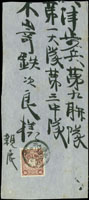 津歩兵第九聯隊
第一大隊第三中隊
木嵜鉄次良様
親展